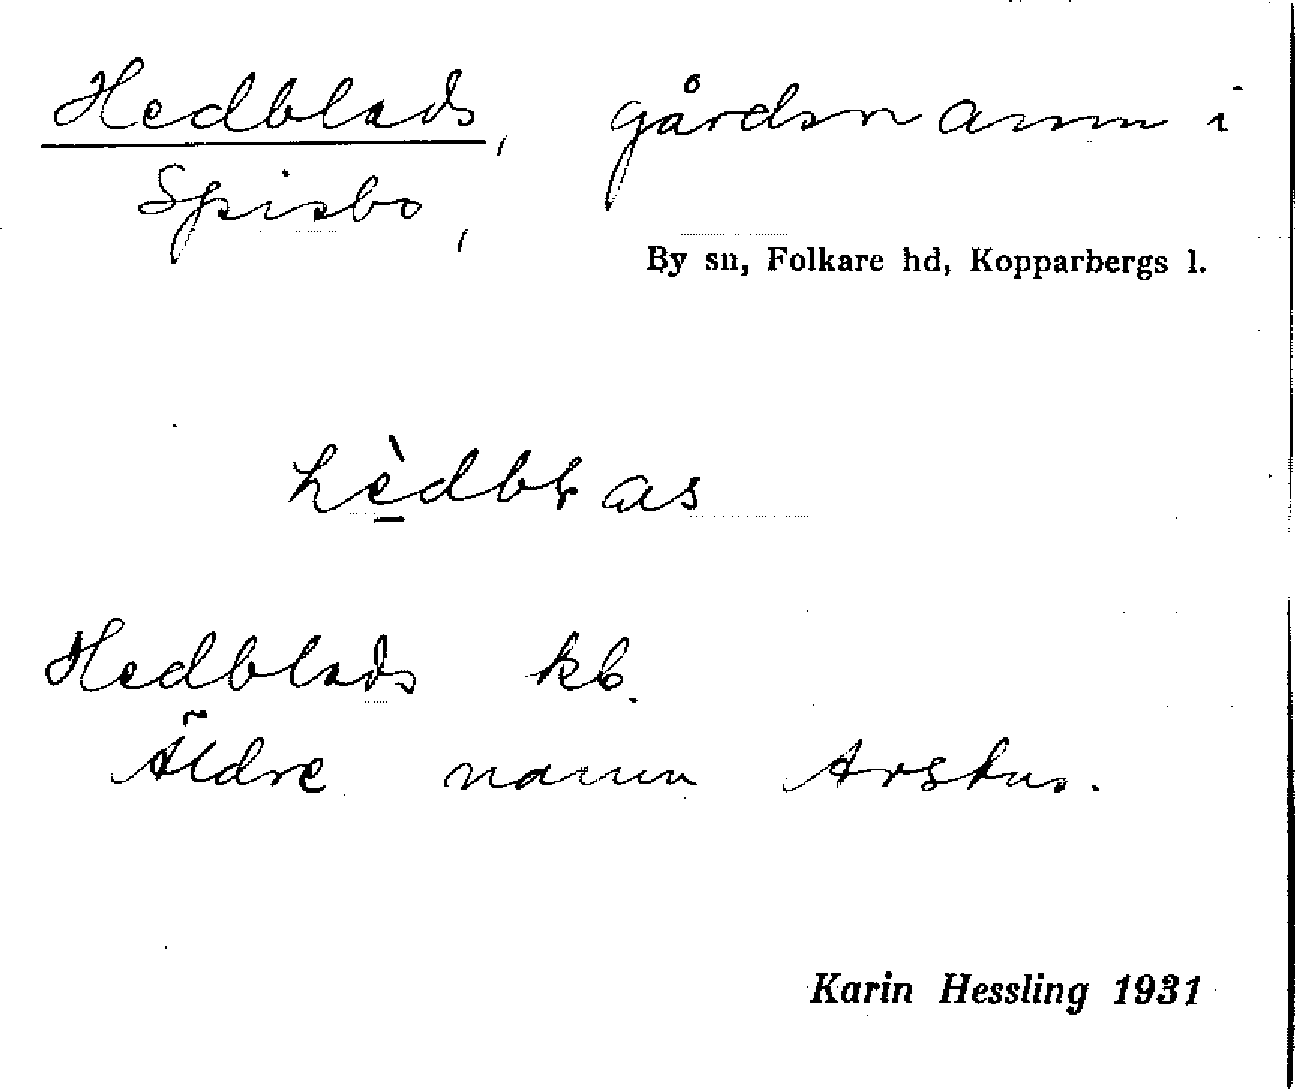 Hedblads, gårdsnamn i
Spisbo,
By sn, Folkare hd, Kopparbergs l.
Hedblads kb.
Äldre namn Arstus.
Karin Hessling 1931